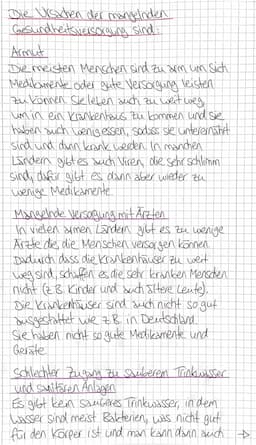 Die Ursachen der mangelnden
Gesundheitsversorgung sind:
Armut
Die meisten Menschen sind zu arm um sich
Medikamente oder gute Versorgung leisten
zu können. Sie leben auch zu weit weg
um in ein Krankenhaus zu kommen und sie
haben auch wenig essen, sodass sie unterernährt
sind und dann krank werden. In manchen
Ländern gibt es auch Viren, die sehr schlimm
sind, dafür gibt es dann aber wieder zu
wenige Medikamente.
Mangelnde Versorgung mit Ärzten
In vielen armen Ländern gibt es zu wenige
Ärzte die, die Menschen versorgen können.
Dadurch dass die Krankenhäuser zu weit
weg sind, schaffen es die sehr kranken Menschen
nicht (z.B. Kinder und auch ältere Leute).
Die Krankenhäuser sind auch nicht so gut
ausgestattet wie z.B. in Deutschland.
Sie haben nicht so gute Medikamente und
Geräte.
Schlechter Zugang zu sauberem Trinkwasser
und sanitären Anlagen
Es gibt kein sauberes Trinkwasser, in dem
Wasser sind meist Bakterien, was nicht gut
für den Körper ist und man kann dann auch →